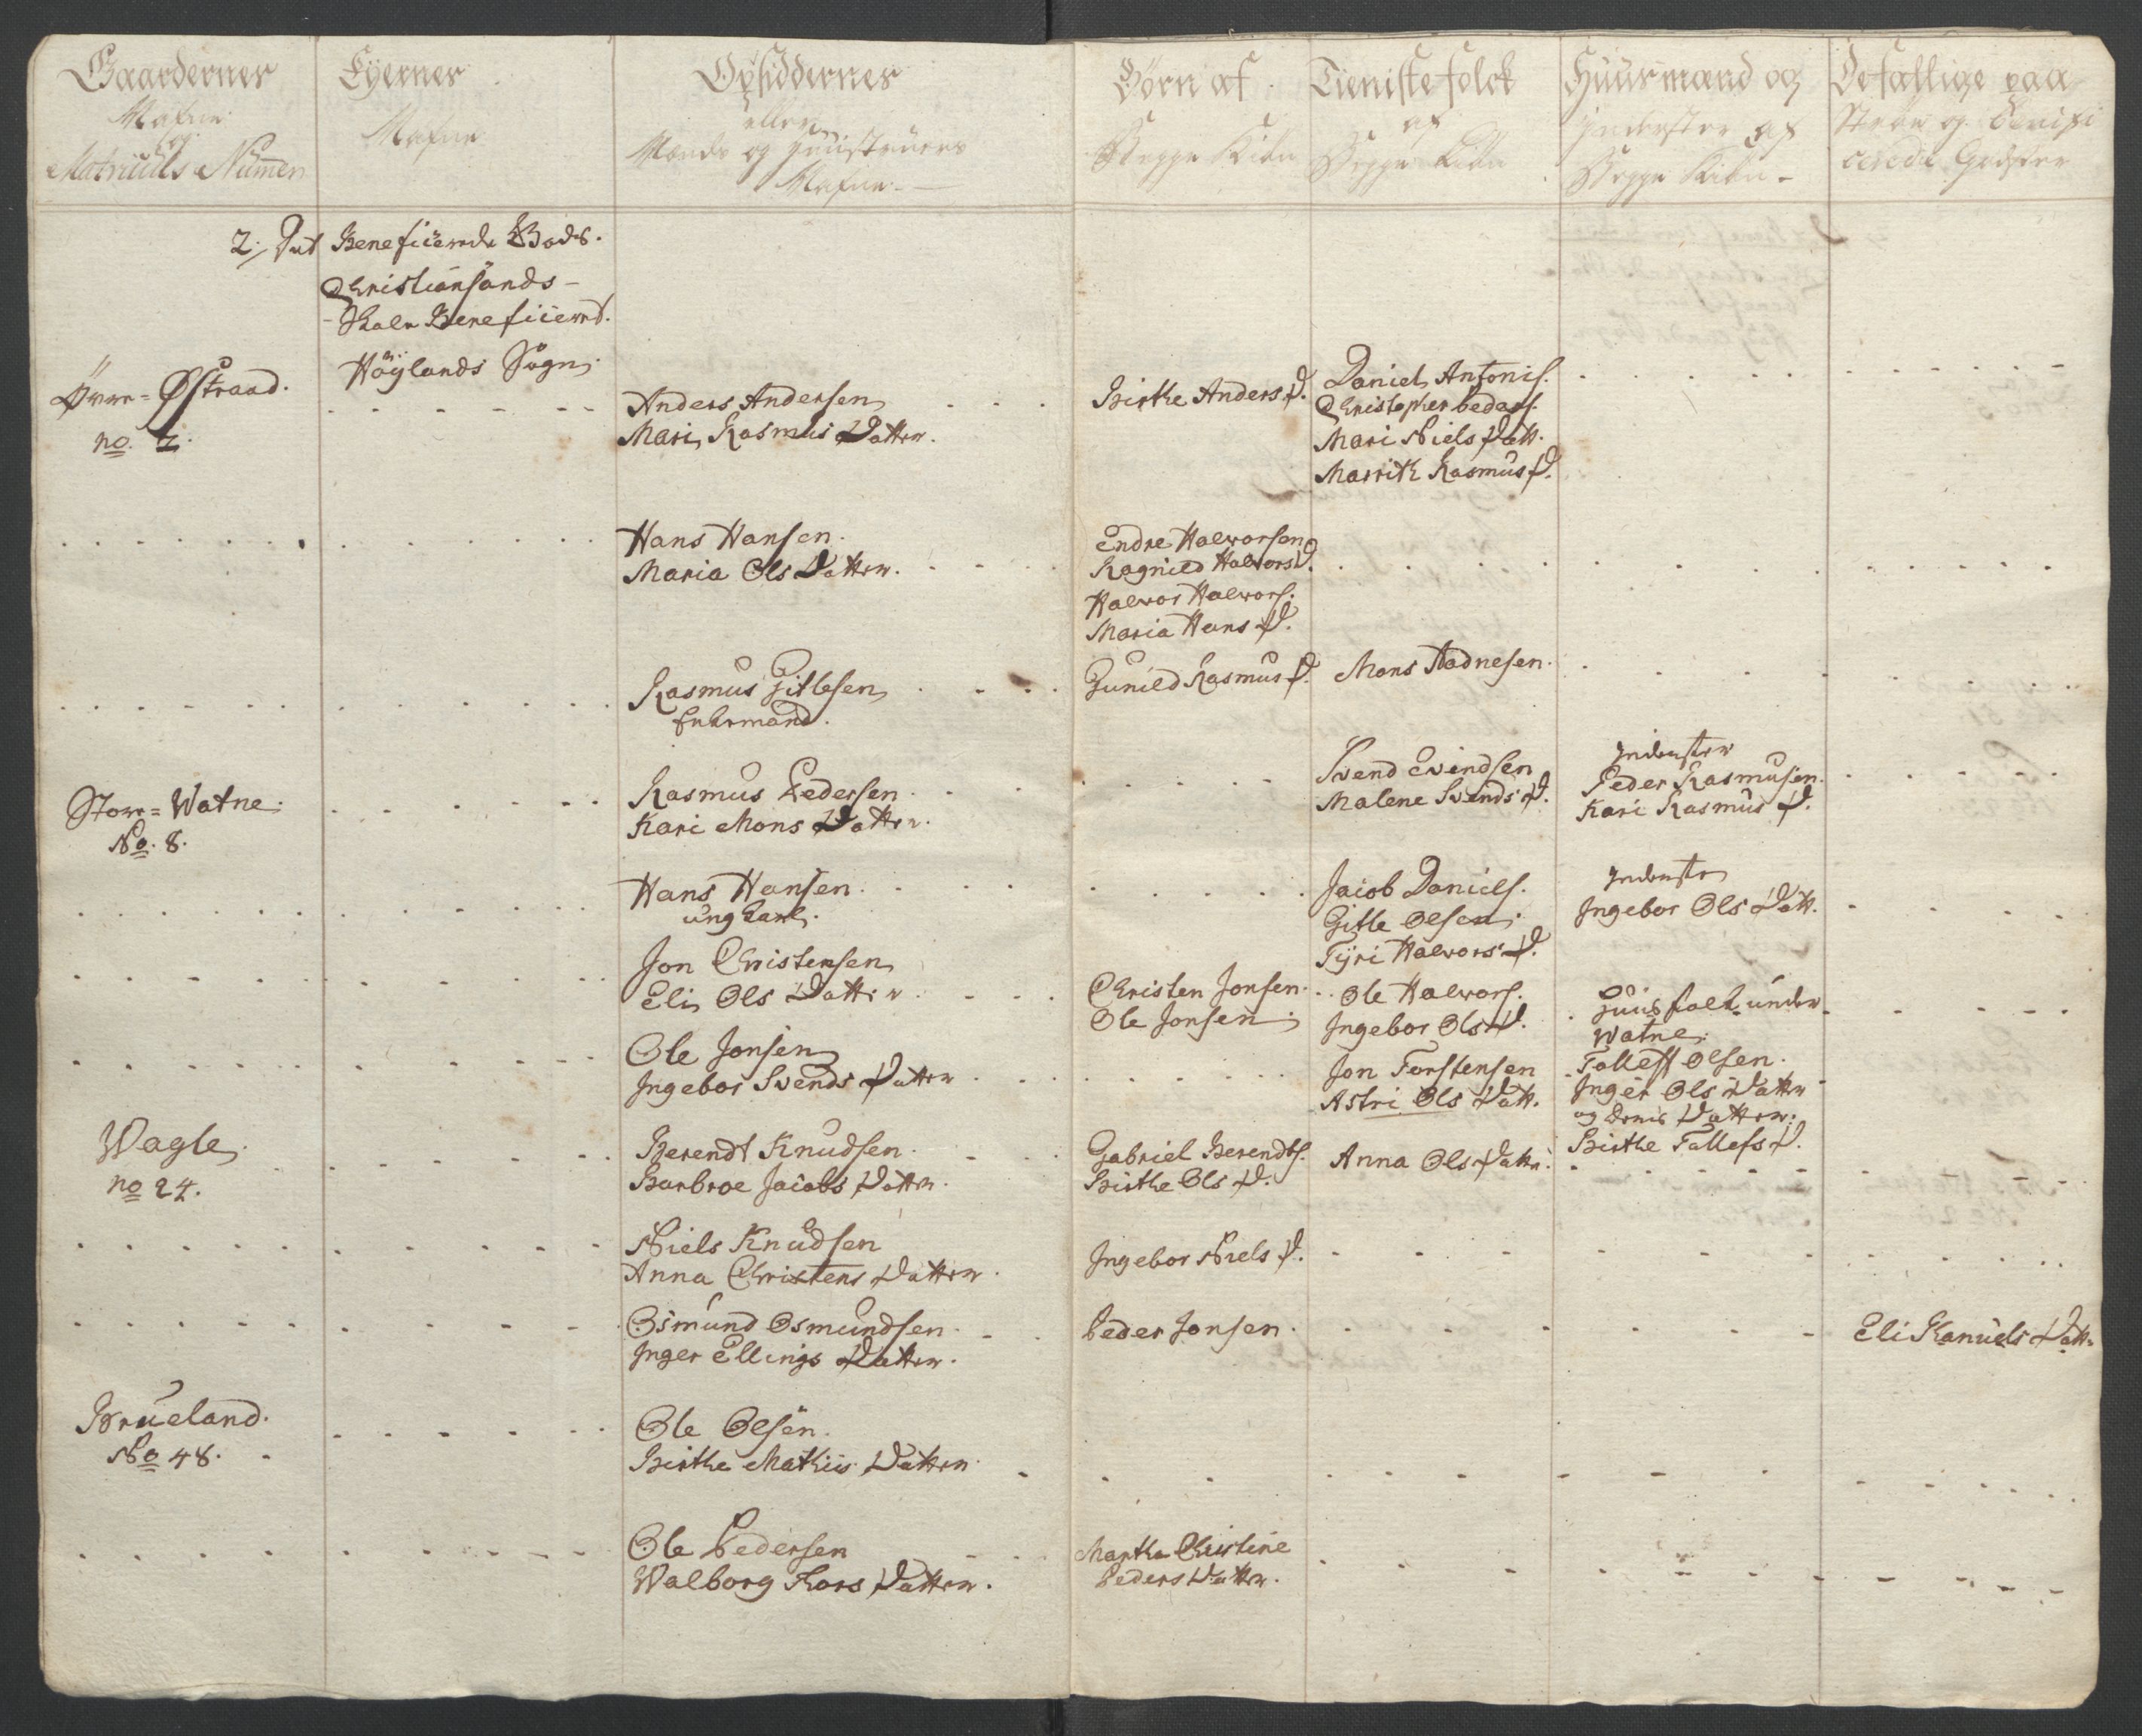 Gaardernes
Nafne
og
Matriculs Numer
Eyernes
Nafne
Opsiddernes
eller
Mands og Huustruers
Nafne
Børn af
Begge Kiøn
Tieniste folck
af
Begge Kiøn
Huusmænd og
Inderster af
Begge Kiøn
De fattige paa
2. Det Beneficerede Gods.
Christiansands-
-Skole Beneficered.
Höylands Sogn.
Øvre=Østraad.
no. 2.
Anders Andersen
Mari Rasmus Datter.
Birthe Anders D.
Daniel Antonis.
Christopher Peders.
Mari Niels Datt.
Marrith Rasmus D.
Hans Hansen.
Maria Ols Datter.
Endre Halvorsen
Ragnild Halvors D.
Halvor Halvors.
Maria Hans D.
Rasmus Gitlesen
Enkemand.
Gunild Rasmus D.
Mons Tadnesen.
Store=Watne.
No. 8.
Rasmus Pedersen
Kari Mons Datter.
Svend Evindsen
Malene Svends D.
Inderster
Peder Rasmusen.
Kari Rasmus D.
Hans Hansen.
ung karl.
Jacob Daniels.
Gitle Olsen.
Tyri Halvors D.
Inderste
Ingebor Ols Datt.
Jon Christensen
Eli Ols Datter
Christen Jonsen.
Ole Jonsen
Ole Halvors.
Ingebor Ols D.
Huusfolk under
Watne.
Ole Jonsen
Ingebor Svends Datter
Jon Torstensen
Astri Ols Datt.
Tollef Olsen.
Inger Ols Datter
og deris Datter.
Birthe Tollefs D.
Wagle
no 24.
Berendt Knudsen.
Barbroe Jacobs Datter.
Gabriel Berendts.
Birthe Ols D.
Anna Ols Datter.
Niels Knudsen
Anna Christens Datter.
Ingebor Niels D.
Osmund Osmundsen.
Inger Ellings Datter.
Peder Jonsen.
Eli Samuels Datt.
Brueland.
No 48.
Ole Olsen.
Birthe Mathiis Datter
Ole Pedersen
Walborg Tors Datter.
Martha Christine
Peders Datter.